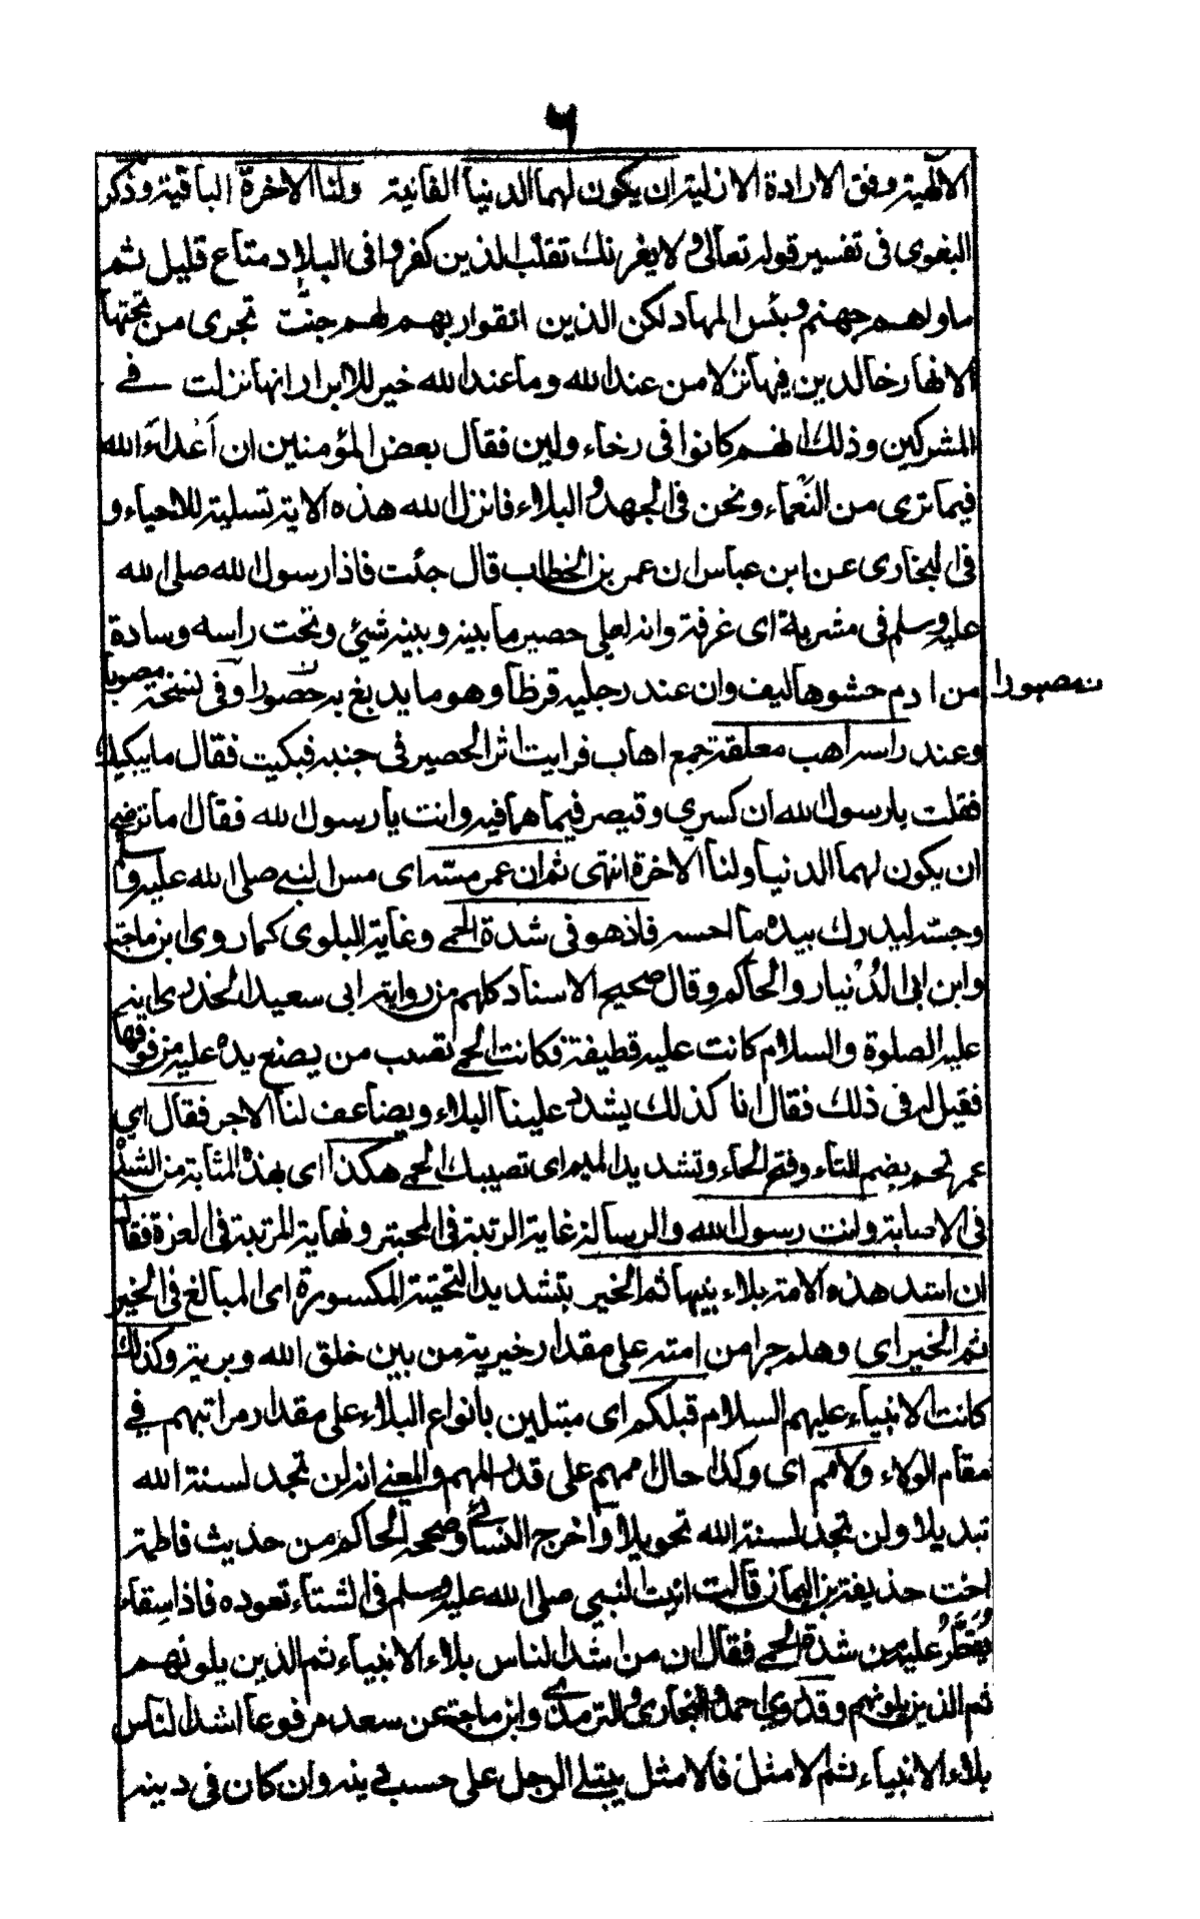 ٦
الآلهية وفق الارادة الازلية ان يكون لهما الدنيا الفانية ولنا الاخرة الباقية وذكر
البغوى فى تفسير قوله تعالى ولا يغرنك تقلب الذين كفروا فى البلاد متاع قليل ثم
ماولهم جهنم وبئس المهاد لكن الذين اتقوا ربهم لهم جنت تجرى من تحتها
الانهار خالدين فيها نزلا من عند الله وما عند الله خير للابرار انها نزلت فى
المشركين وذلك انهم كانوا فى رخاء ولين فقال بعض المؤمنين ان أعداءَ الله
فيما نرى من النعماء ونحن فى الجهد والبلاء فانزل الله هذه الاية تسلية للاحياء و
فى البخارى عن ابن عباس ان عمر بن الخطاب قال جئت فاذا رسول الله صلى الله
عليه وسلم فى مشربة اى غرفة وانه لعلى حصير ما بينه وبينه شيئ وتحت راسه وسادة
من ادم حشوها ليف وان عند رجليه قرظا وهو ما يدبغ به مصبورا وفى نسخة مصوبا
ن مصبورا
وعند راسه اهب معلقة جمع اهاب فرايت اثر الحصير فى جنبه فبكيت فقال ما يبكيك
فقلت يا رسول الله ان كسرى وقيصر فيما هما فيه وانت يا رسول الله فقال اما ترضى
ان يكون لهما الدنيا ولنا الآخرة انتهى ثم ان عمر مسّه اى مس النبى صلى الله عليه وسلم
وجسّه ليدرك بيده ما احسه فاذ هو فى شدة الحمى وغاية البلوى كما روى ابن ماجة
وابن ابى الدُنيا والحاكم وقال صحيح الاسناد كلهم من رواية ابى سعيد الخدرى انه
عليه الصلوة والسلام كانت عليه قطيفة فكانت الحمى تصب من يضع يده عليه من فوقها
فقيل له فى ذلك فقال انا كذلك يشدد علينا البلاء ويضاعف لنا الاجر فقال اى
عمر تحم بضم التاء وفتح الحاء وتشديد الميم اى تصيبك الحمى هكذا اى بهذه المثابة من الشدة
فى الاصابة وانت رسول الله والرسالة غاية الرتبة فى المحبة ونهاية المرتبة فى العزة فقال
ان اشد هذه الامة بلاء نبيها ثم الخير بتشديد التحتية المكسورة اى المبالغ فى الخير
ثم الخير اى وهلم جرا من امته على مقدار خيريته من بين خلق الله وبريته وكذلك
كانت الانبياء عليهم السلام قبلكم اى مبتلين بانواع البلاء على مقدار مراتبهم فى
مقام الولاء والامم اى وكذا حال اممهم على قدر الهمم والمعنى انه لن تجد لسنة الله
تبديلا ولن تجد لسنة الله تحويلا واخرج النسائى وصححه الحاكم من حذيث فاطمة
اخت حذيفة بن اليمان قالت اتيت النبى صلى الله عليه وسلم فى الشتاء نعوده فاذا سقاء
يُقَطَّرُ عليه من شدة الحمى فقال ان من اشد الناس بلاء الانبياء ثم الذين يلونهم
ثم الذين يلونهم وقد روى احمد والبخارى والترمذى وابن ماجة عن سعد مرفوعا اشد الناس
بلاء الانبياء ثم الامثل فالامثل يبتلى الرجل على حسب دينه وان كان فى دينه